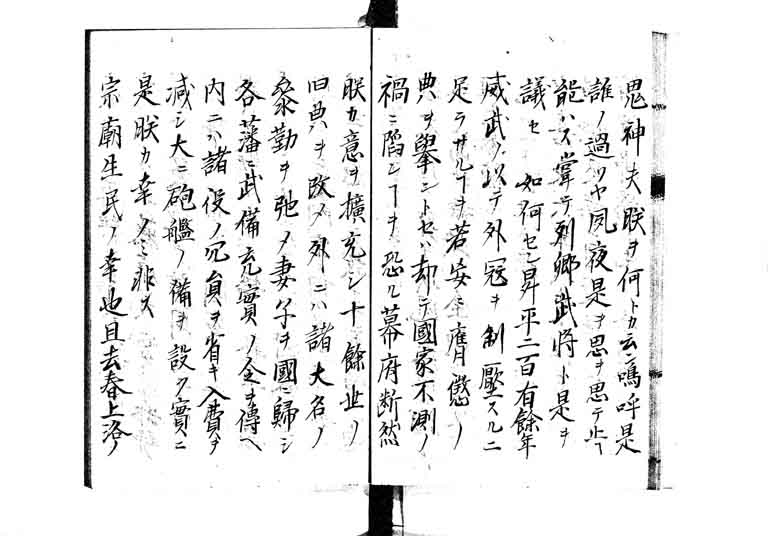 鬼神夫朕ヲ何トカ云ン嗚呼是
誰ノ過ソヤ夙夜是ヲ思テ止ヿ
能ハス嘗テ列卿武将ト是ヲ
議セ 如何セン昇平二百有餘年
威武ノ以テ外冦ヲ制壓スルニ
足ラサルヿヲ若妄ニ膺懲ノ
典ヲ擧ントセハ却テ國家不測ノ
禍ニ陷ンヿヲ恐ル幕府断然
朕カ意ヲ擴充シ十餘世ノ
旧典ヲ改メ外ニハ諸大名ノ
參勤ヲ弛メ妻子ヲ國ニ歸シ
各藩ニ武備充實ノ令ヲ傳ヘ
内ニハ諸役ノ冗員ヲ省キ入費ヲ
減シ大ニ砲艦ノ備ヲ設ク實ニ
是朕カ幸ノミ非ス
宗廟生民ノ幸也且去春上洛ノ